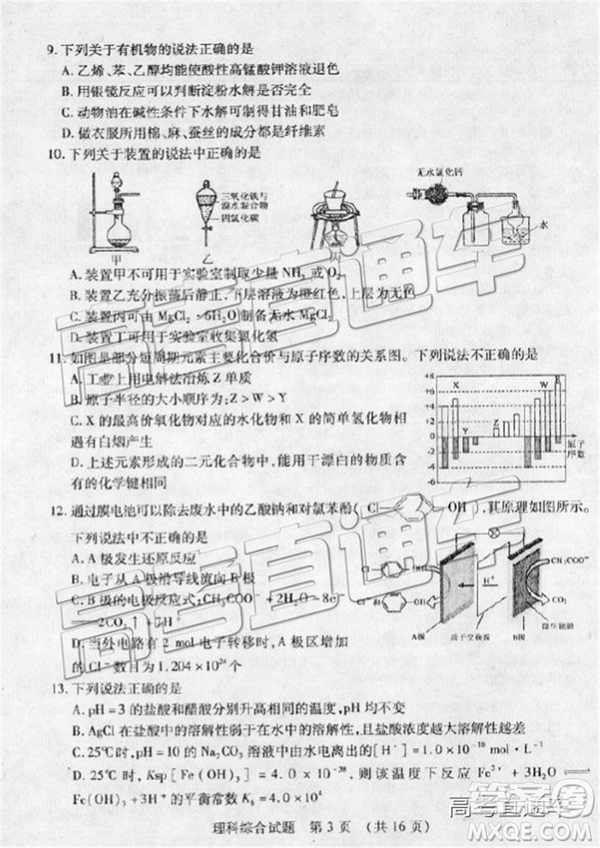 9.下列关于有机物的说法正确的是
A.乙烯、苯、乙醇均能使酸性高锰酸钾溶液退色
B.用银镜反应可以判断淀粉水解是否完全
C.动物油在碱性条件下水解可制得甘油和肥皂
D.做衣服所用棉、麻、蚕丝的成分都是纤维素
10.下列关于装置的说法中正确的是
三氧化铁与
溴水混合物
四氯化碳
无水氯化钙
水
甲
乙
丙
A.装置甲不可用于实验室制取少量NH₃或O₂
B.装置乙充分振荡后静止,下层溶液为橙红色,上层为无色
C.装置丙可由MgCl₂·6H₂O制备无水MgCl₂
D.装置丁可用于实验室收集氯化氢
11.如图是部分短周期元素主要化合价与原子序数的关系图。下列说法不正确的是
A.工业上用电解法冶炼Z单质
B.原子半径的大小顺序为:Z>W>Y
C.X的最高价氧化物对应的水化物和X的简单氢化物相
遇有白烟产生
D.上述元素形成的二元化合物中,能用于漂白的物质含
有的化学键相同
+8
+6
+4
+2
0
-2
-4
X
Y
Z
W
原子
序数
12.通过膜电池可以除去废水中的乙酸钠和对氯苯酚(Cl OH),其原理如图所示。
下列说法中不正确的是
A.A极发生还原反应
B.电子从A极沿导线流向B极
C.B极的电极反应式:CH₃COO⁻+2H₂O-8e⁻
2CO₂↑+7H⁺
D.当外电路有2 mol电子转移时,A极区增加
的Cl⁻数目为1.204×10²⁴个
Cl
OH
OH
H⁺
CH₃COO⁻
CO₂
微生物膜
A极
质子交换膜
B极
13.下列说法正确的是
A.pH=3的盐酸和醋酸分别升高相同的温度,pH均不变
B.AgCl在盐酸中的溶解性弱于在水中的溶解性,且盐酸浓度越大溶解性越差
C.25℃时,pH=10的Na₂CO₃溶液中由水电离出的[H⁺]=1.0×10⁻¹⁰mol·L⁻¹
D.25℃时,Ksp[Fe(OH)₃]=4.0×10⁻³⁸,则该温度下反应Fe³⁺+3H₂O
Fe(OH)₃+3H⁺的平衡常数K₈=4.0×10⁴
理科综合试题 第3页 (共16页)
高考直通车
高考直通车
高考直通车